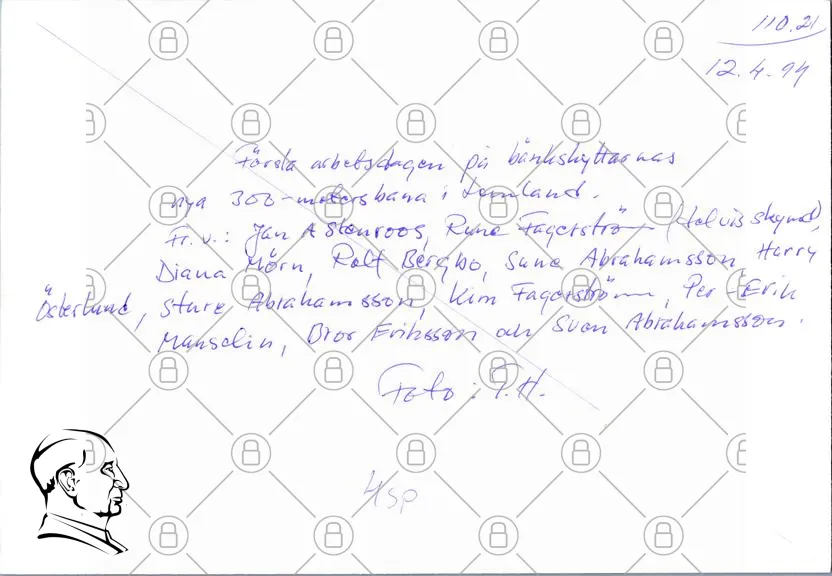 110.21
12.4.94
Första arbetsdagen på bänkskyttarnas
nya 300-metersbana i Lemland.
Fr. v.: Jan A Stenroos, Rune Fagerström (halvvis skymd),
Diana Mörn, Rolf Bergbo, Sune Abrahamsson Harry
Österlund, Sture Abrahamsson, Kim Fagerström, Per-Erik
Manselin, Bror Eriksson och Sven Abrahamsson.
Foto: T.H.
4sp